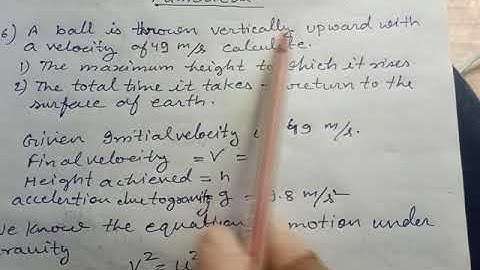 6) A ball is thrown vertically upward with
a velocity of 49 m/s calculate.
1) The maximum height to which it rises
2) The total time it takes return to the
surface of earth.
Given Initial velocity 49 m/s.
Final velocity = V =
Height achieved = h
acclertion due to gravity g = 9.8 m/s²
We know the equation motion under
gravity
V² = u²